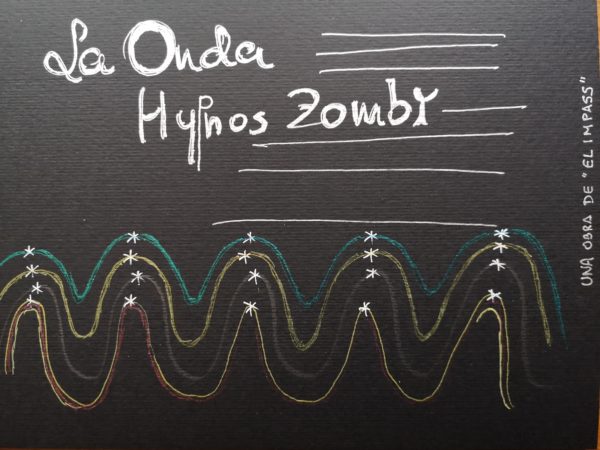 La Onda
Hypnos Zomby
UNA OBRA DE "EL IMPASS"